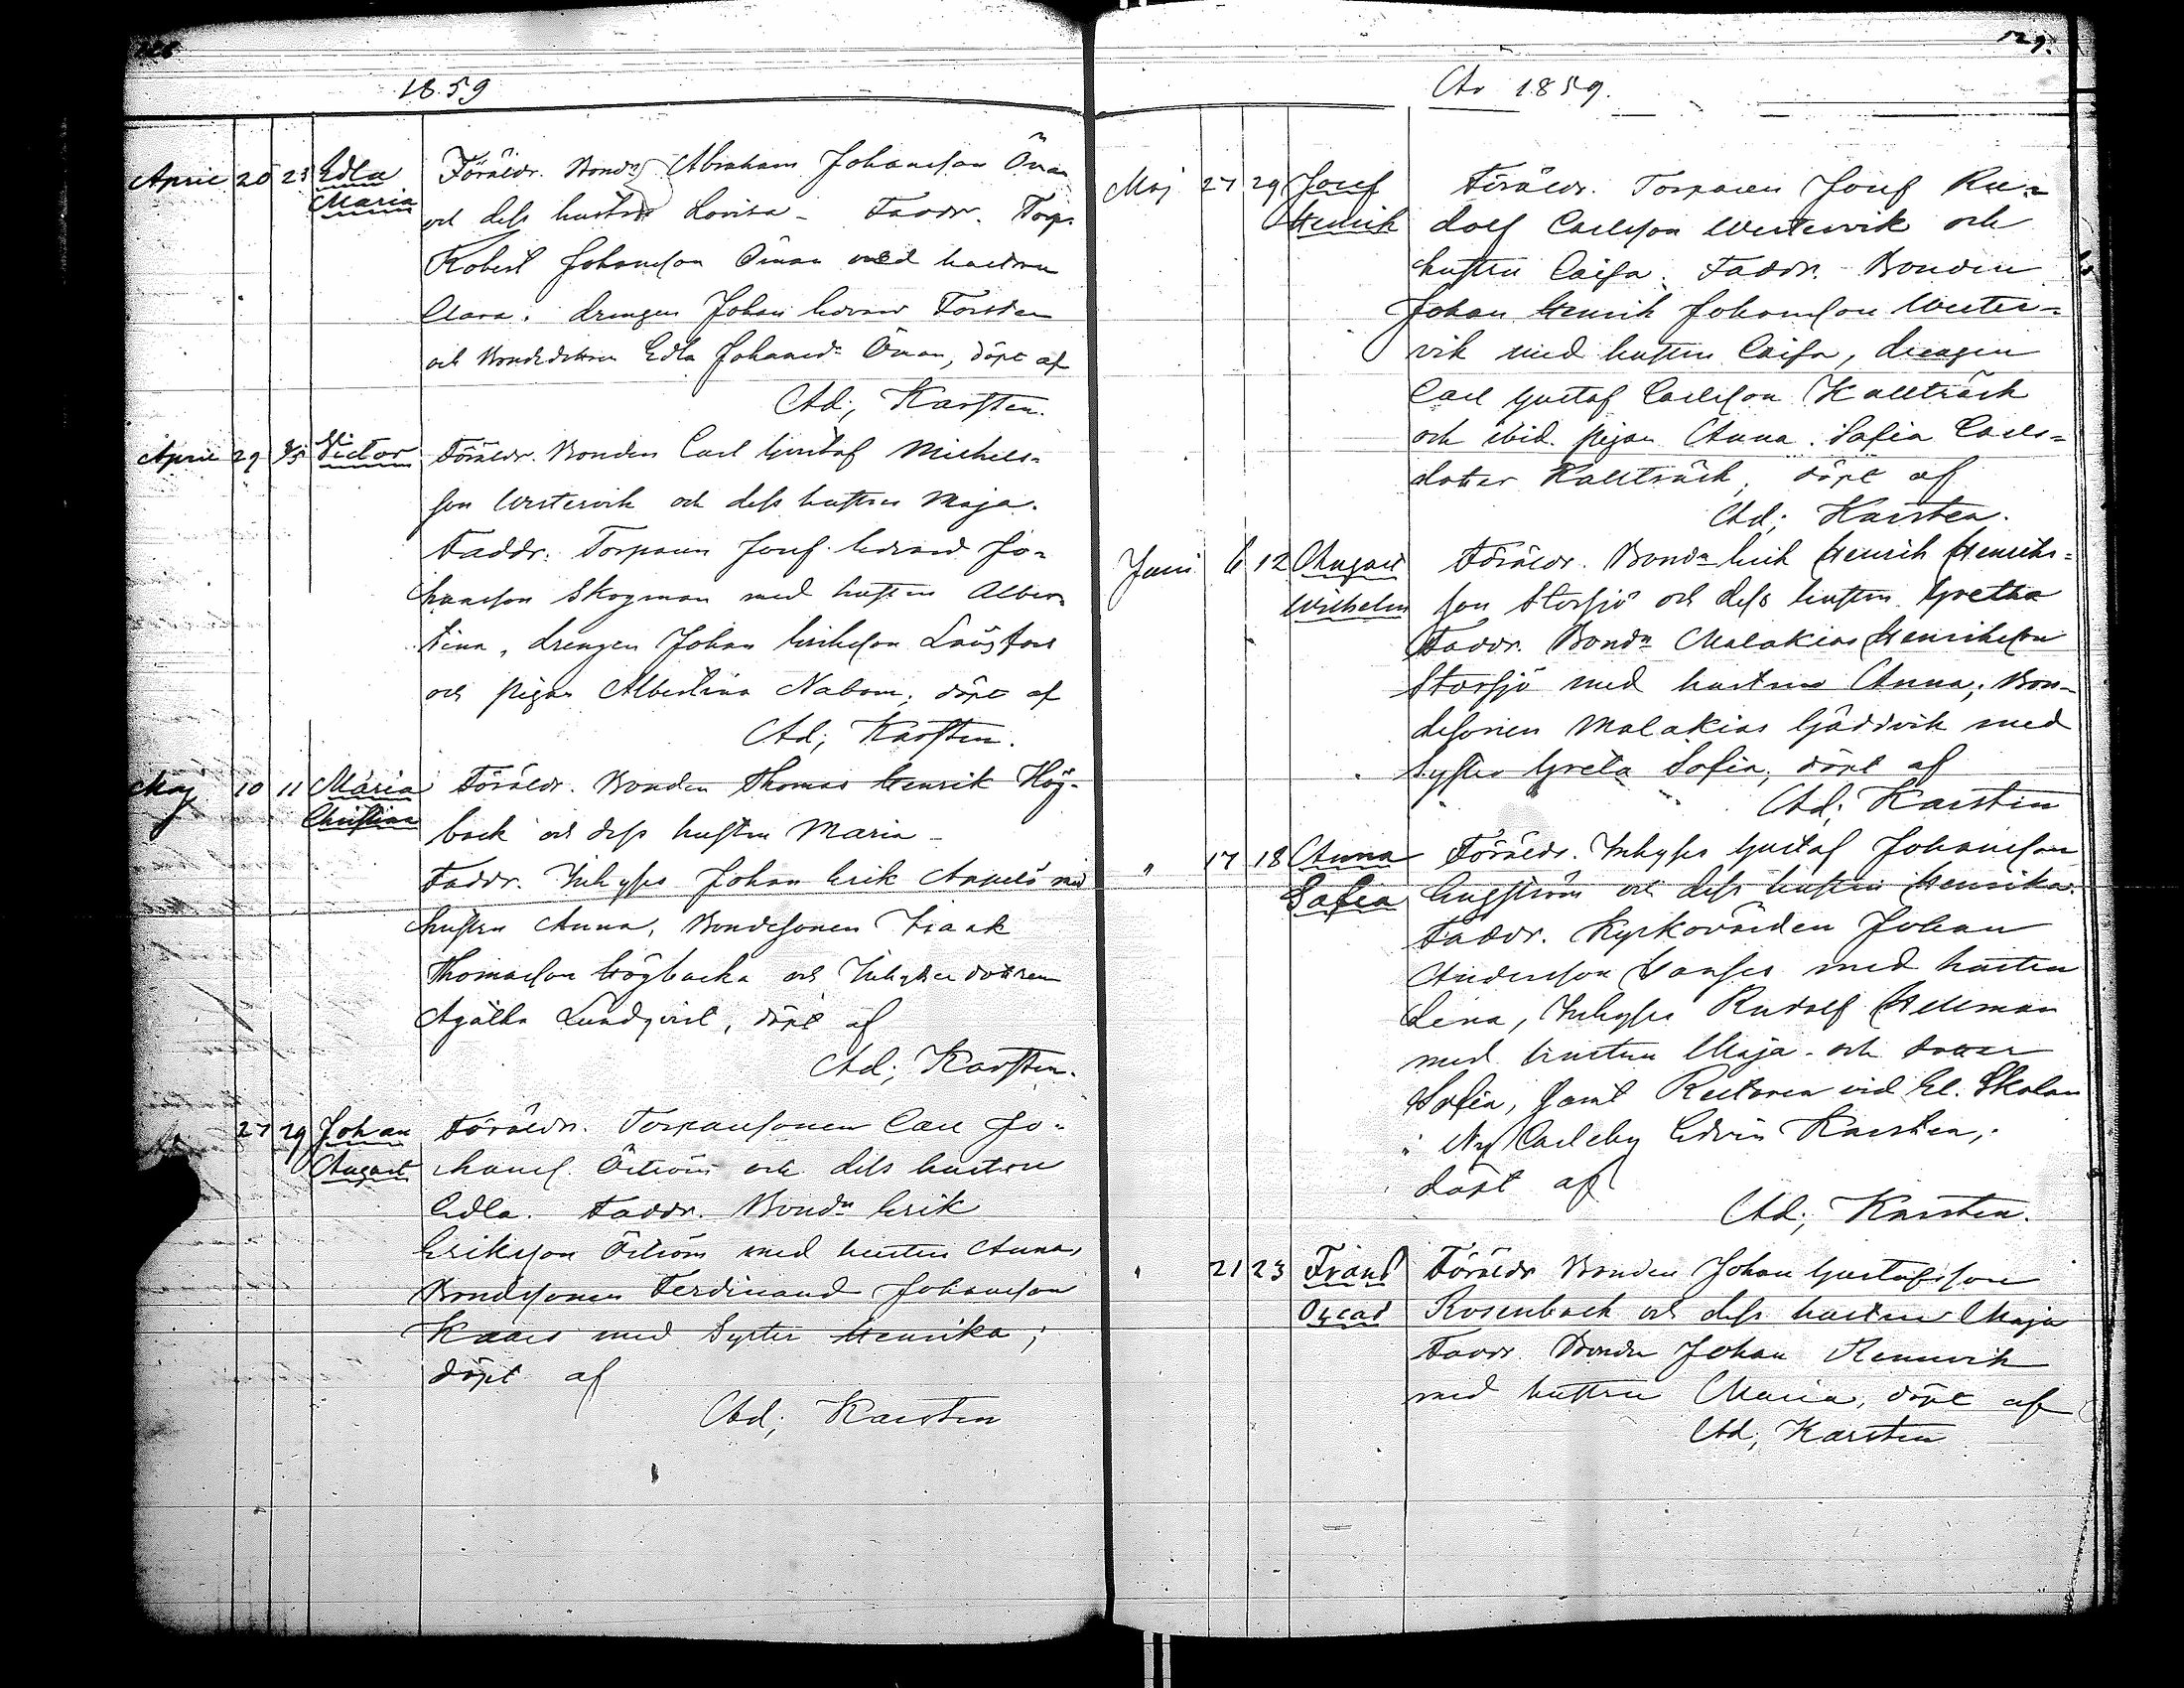 1859
April 20 23 Edla Föräldr. Bond Abraham Johansson Öman
Maria och dess hustru Lovisa - Faddr. Torp.
Robert Johansson Öman med hustru
Clara, drengen Johan Edvard Forsten
och Bondedottren Edla Johansdr Öman, döpt af
Ad; Karsten.
April 29 Victor Föräldr. Bonden Carl Gustaf Michels-
son Westervik och dess hustru Maja.
Faddr. Torparen Josef Edvard Jo-
hansson Skogman med hustru Alber-
tina, drengen Johan Eriksson
och pigan Albertina Nabom, döpt af
Ad; Karsten.
Maj 10 11 Maria Föräldr. Bonden Thomas Henrik Hög-
Christina back och dess hustru Maria -
Faddr. Inhyses Johan Erik med
hustru Anna, Bondesonen Isaak
Thomasson Högbacka och Inhyses dottren
Agatha Lundqvist, döpt af
Ad; Karsten.
27 29 Johan Föräldr. Torparesonen Carl Jo-
August hanss. Öström och dess hustru
Edla. Faddr. Bondn Erik
Eriksson Öström med hustru Anna,
Bondesonen Ferdinand Johansson
med Syster Henrika;
döpt af
Ad; Karsten
129.
År 1859.
Maj 27 29 Josef Föräldr. Torparen Josef Ru-
Henrik dolf Carlsson Westervik och
hustru Caisa. Faddr. Bonden
Johan Henrik Johansson Wester-
vik med hustru Caisa, drengen
Carl Gustaf Carlsson Kallträsk
och ibid. pigan Anna Sofia Carls-
dotter Kallträsk, döpt af
Ad; Karsten.
Juni 6 12 August Föräldr. Bondn Erik Henrik Henriks-
Wilhelm son Storsjö och dess hustru Gretha
Faddr. Bondn Malakias Henriksson
Storsjö med hustru Anna; Bon-
desonen Malakias Gäddvik med
Syster Greta Sofia, döpt af
Ad; Karsten
" 17 18 Anna Föräldr. Inhyses Gustaf Johansson
Sofia Engström och dess hustru Henrika.
Faddr. Kyrkovärden Johan
Andersson med hustru
Lena, Inhyses Rudolf Hellman
med hustru Maja och dotter
Sofia, samt Rectoren vid El. Skolan
i Ny Carleby Edvin Karsten;
döpt af
Ad; Karsten.
" 21 23 Frans Föräldr Bonden Johan Gustafsson
Oscar Rosenback och dess hustru Maja
Faddr. Bonden Johan
med hustru Maria, döpt af
Ad; Karsten